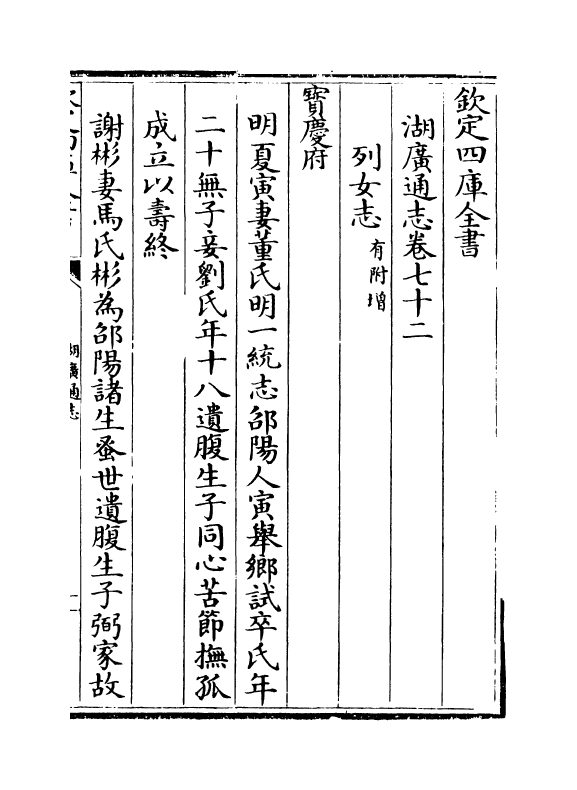 欽定四庫全書
湖廣通志卷七十二
列女志有附增
寳慶府
明夏寅妻董氏明一統志邵陽人寅舉鄉試卒氏年
二十無子妾劉氏年十八遺腹生子同心苦節撫孤
成立以壽終
謝彬妻馬氏彬為邵陽諸生蚤世遺腹生子弼家故
湖廣通志